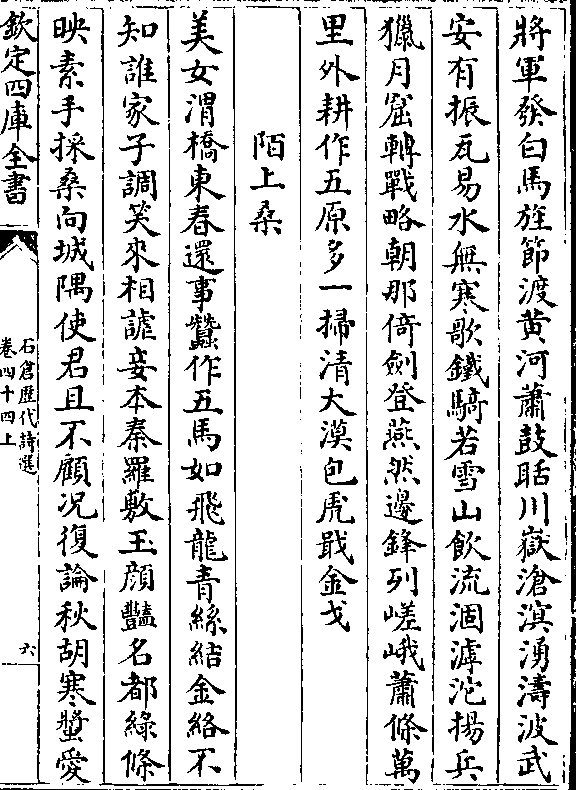 將軍發白馬旌節渡黄河蕭鼓聒川嶽滄溟湧濤波武
安有振瓦易水無寒歌鐵騎若雪山飲流涸滹沱揚兵
獵月窟轉戰略朝那倚劍登燕然邊鋒列嵯峨蕭條萬
里外耕作五原多一掃清大漠包虎戢金戈
陌上桑
美女渭橋東春還事蠶作五馬如飛龍青絲結金絡不
知誰家子調笑來相謔妾本秦羅敷玉顔豔名都綠條
映素手採桑向城隅使君且不顧况復論秋胡寒螿愛
欽定四庫全書
石倉歷代詩選
卷四十四上
六